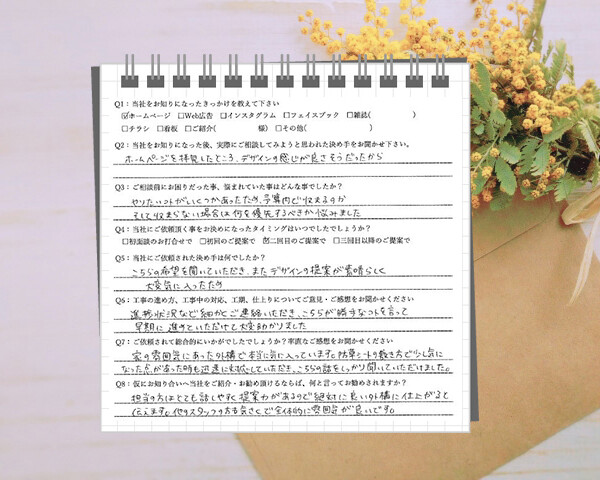 Q1：当社をお知りになったきっかけを教えて下さい
☑ホームページ □Web広告 □インスタグラム □フェイスブック □雑誌( )
□チラシ □看板 □ご紹介( 様) □その他( )
Q2：当社をお知りになった後、実際にご相談してみようと思われた決め手をお聞かせ下さい。
ホームページを拝見したところ、デザインの感じが良さそうだったから
Q3：ご相談前にお困りだった事、悩まれていた事はどんな事でしたか？
やりたいコトがいくつかあったため、予算内で収まるのか
そして収まらない場合は何を優先するべきか悩みました
Q4：当社にご依頼頂く事をお決めになったタイミングはいつでしたでしょうか？
□初面談のお打合せで □初回のご提案で ☑二回目のご提案で □三回目以降のご提案で
Q5：当社にご依頼された決め手は何でしたか？
こちらの希望を聞いていただき、またデザインの提案が素晴らしく
大変気に入ったため
Q6：工事の進め方、工事中の対応、工期、仕上りについてご意見・ご感想をお聞かせください
進捗状況など細かくご連絡いただき、こちらが勝手なコトを言って
早期に進めていただけて大変助かりました
Q7：ご依頼されて総合的にいかがでしたでしょうか？率直なご感想をお聞かせください
家の雰囲気にあった外構で本当に気に入っています。防草シートの敷き方で少し気に
なった点があった時も迅速に対応していただき、こちらの話をしっかり聞いていただけました。
Q8：仮にお知り合いへ当社をご紹介・お勧め頂けるならば、何と言ってお勧めされますか？
担当の方はとても話しやすく提案力があるので絶対に良い外構に仕上がると
伝えます。他のスタッフの方も気さくで全体的に雰囲気が良いです。